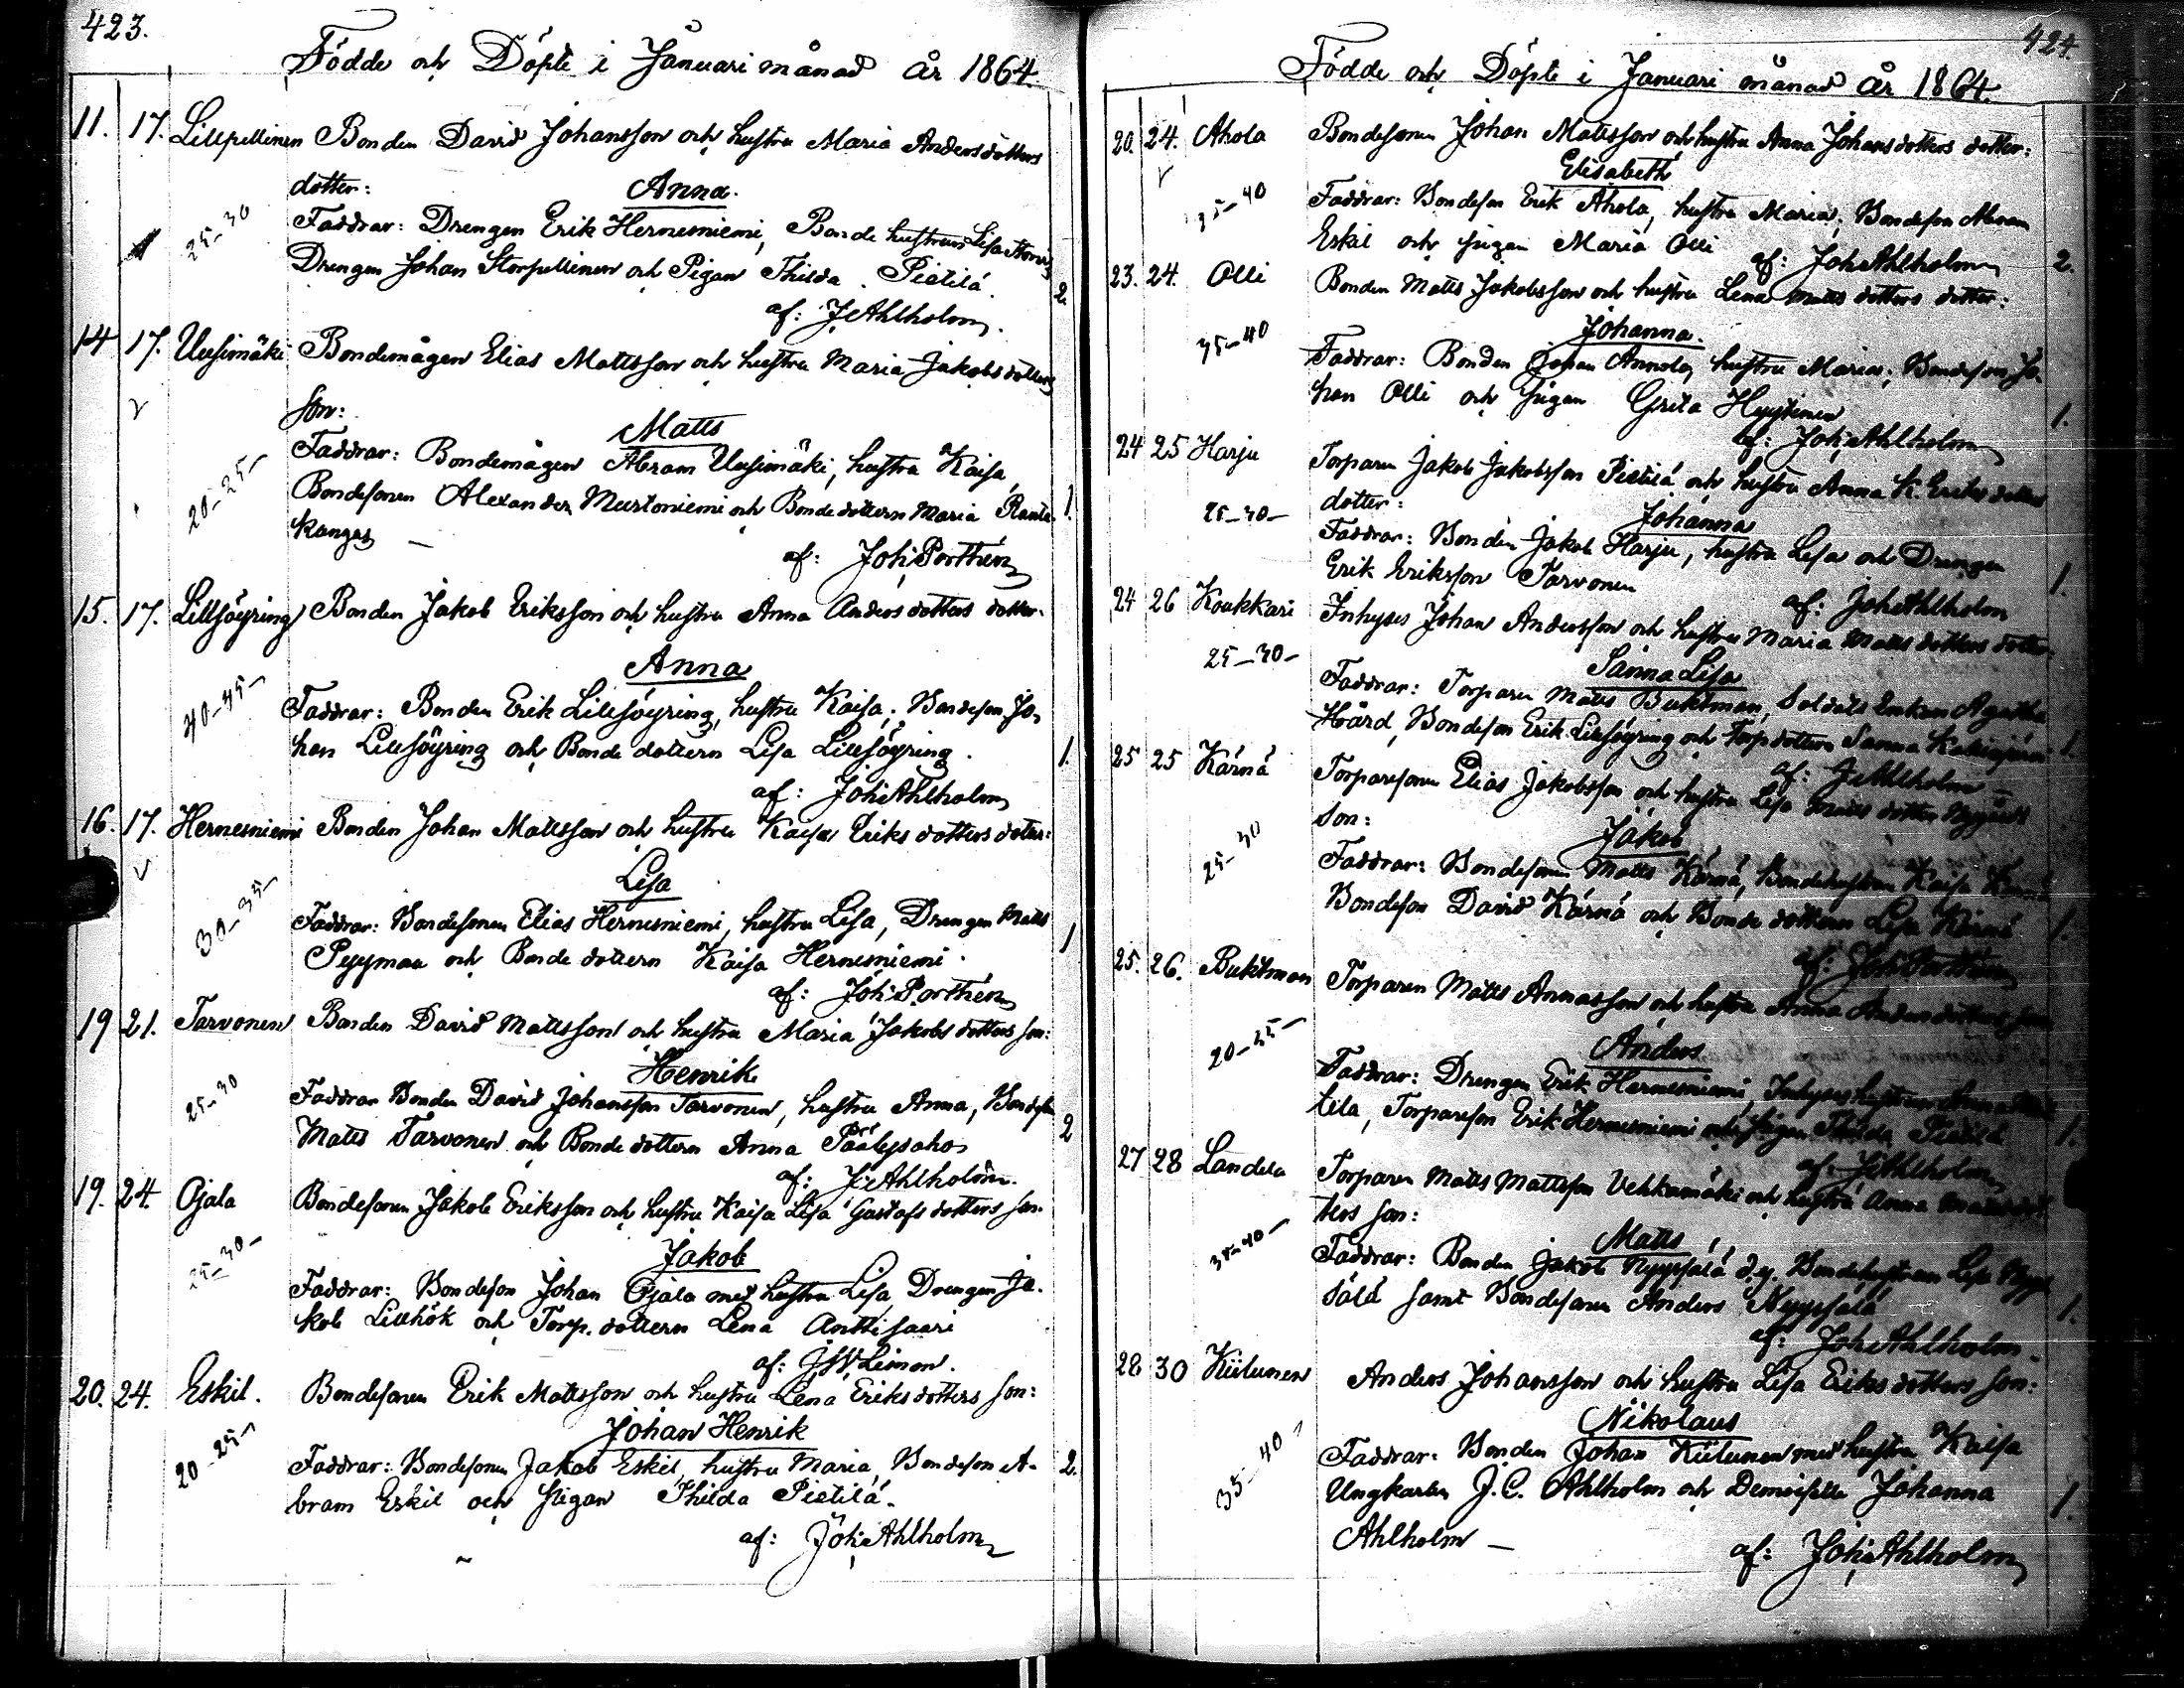 423.
Födde och Döpte i Januari månad år 1864.
11. 17. Lillpellinen Bonden David Johansson och hustru Maria Andersdotters
dotter:
Anna.
25-30
Faddrar: Drengen Erik Hernesniemi, Bonde hustrun Lisa
Drengen Johan Storpellinen och Pigan Thilda Pietilä. 2
af: J Ahlholm.
14 17. Uusimäki Bondemågen Elias Mattsson och hustru Maria Jakobsdotters
son:
Matts
20-25-
Faddrar: Bondemågen Abram Uusimäki, hustru Kaisa,
Bondesonen Alexander Murtoniemi och Bondedottern Maria Ranta 1.
kangas
af: Joh Porthén
15. 17. Lillsöyring Bonden Jakob Eriksson och hustru Anna Anders dotters dotter.
Anna
40-45-
Faddrar: Bonden Erik Lillsöyring, hustru Kaisa; Bondeson Jo-
han Lillsöyring och Bonde dottern Lisa Lillsöyring. 1.
af: Joh Ahlholm
16. 17. Hernesniemi Bonden Johan Mattsson och hustru Kaisa Eriks dotters doter:
Lisa
30-35-
Faddrar: Bondesonen Elias Hernesniemi, hustru Lisa, Drengen Matts 1
Pyyman och Bonde dottern Kaisa Hernesniemi.
af: Joh Porthén
19 21. Tarvonen Bonden David Mattsson och hustru Maria Jakobs dotters son:
Henrik
25-30
Faddrar Bonden David Johansson Tarvonen, hustru Anna, Bondeson
Matts Tarvonen och Bonde dottern Anna Päälysaho 2
af: J Ahlholm.
19. 24. Ojala Bondesonen Jakob Eriksson och hustru Kaisa Lisa Gustafs dotters son.
Jakob
25-30-
Faddrar: Bondeson Johan Ojala med hustru Lisa, Drengen Ja-
kob Lillhök och Torp. dottern Lena Anttisaari
af: J W Limon.
20. 24. Eskil. Bondesonen Erik Mattsson och hustru Lena Eriks dotters son:
Johan Henrik
20-25-
Faddrar: Bondesonen Jakob Eskil, hustru Maria, Bondeson A- 2.
bram Eskil och Pigan Thilda Pietilä.
af: Joh Ahlholm
424.
Födde och Döpte i Januari månad år 1864.
20. 24. Ahola Bondesonen Johan Mattsson och hustru Anna Johansdotters dotter:
Elisabeth
35-40
Faddrar: Bondeson Erik Ahola, hustru Maria, Bondeson Abram
Eskil och Pigan Maria Olli
af: Joh Ahlholm 2.
23. 24. Olli Bonden Matts Jakobsson och hustru Lena Matts dotters dotter:
Johanna.
35-40
Faddrar: Bonden Johan Annola, hustru Maria, Bondeson Jo-
han Olli och Pigan Greta Hyytinen 1.
af: Joh Ahlholm
24 25 Harju Torparen Jakob Jakobsson Pietilä och hustru Anna K. Eriksdotters
dotter:
Johanna
25-30-
Faddrar: Bonden Jakob Harju, hustru Lisa och Drengen
Erik Eriksson Tarvonen 1.
af: Joh Ahlholm
24 26 Koukkari Inhyses Johan Andersson och hustru Maria Matts dotters dotter.
Sanna Lisa
25-30-
Faddrar: Torparen Matts Buktman, Soldats Enkan Agatha
Hård, Bondeson Erik Lillsöyring och Torpdottern Sanna 1.
af: J Ahlholm
25 25 Kärnä Torparesonen Elias Jakobsson och hustru Lisa Matts dotter
son:
Jakob
25-30
Faddrar: Bondesonen Matts Kärnä, Bondehustrun Kaisa
Bondeson David Kärnä och Bonde dottern Lisa Kärnä 1.
af: Joh Porthén
25. 26. Buktman Torparen Matts Annasson och hustru Anna Andersdotters son
Anders
20-25-
Faddrar: Drengen Erik Hernesniemi, Inhyseshustrun Anna
tila, Torpareson Erik Hernesniemi och Pigan Thilda Pietilä 1.
af: J Ahlholm
27 28 Landela Torparen Matts Mattsson Vehkamäki och hustru Anna Mattsdot
ters son:
Matts
35-40-
Faddrar: Bonden Jakob Nyyssälä d.y. Bondehustrun Lisa Nyys
sälä samt Bondesonen Anders Nyyssälä 1.
af: Joh Ahlholm
28 30 Kiilunen Anders Johansson och hustru Lisa Eriks dotters son:
Nikolaus
35-40
Faddrar: Bonden Johan Kiilunen med hustru Kaisa
Ungkarlen J. C. Ahlholm och Demoiselle Johanna 1.
Ahlholm
af: Joh Ahlholm